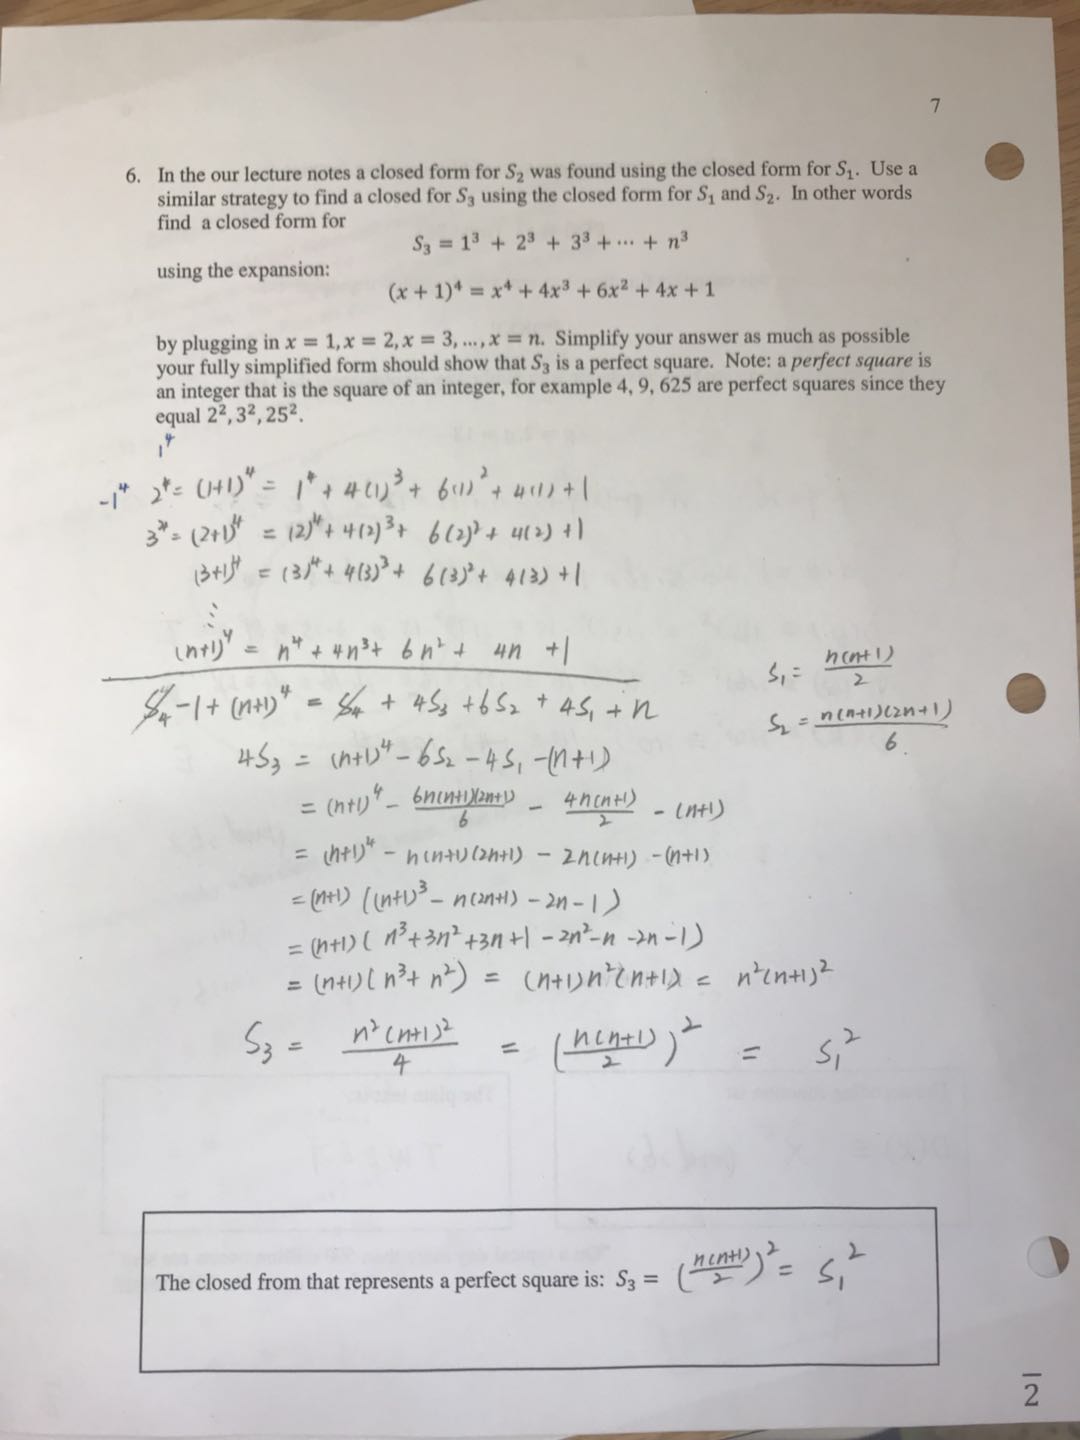 7
6. In the our lecture notes a closed form for S₂ was found using the closed form for S₁. Use a
similar strategy to find a closed for S₃ using the closed form for S₁ and S₂. In other words
find a closed form for
S₃ = 1³ + 2³ + 3³ + ⋯ + n³
using the expansion:
(x + 1)⁴ = x⁴ + 4x³ + 6x² + 4x + 1
by plugging in x = 1, x = 2, x = 3, ..., x = n. Simplify your answer as much as possible
your fully simplified form should show that S₃ is a perfect square. Note: a perfect square is
an integer that is the square of an integer, for example 4, 9, 625 are perfect squares since they
equal 2², 3², 25².
1⁴
-1⁴ 2⁴ = (1+1)⁴ = 1⁴ + 4(1)³ + 6(1)² + 4(1) + 1
3⁴ = (2+1)⁴ = (2)⁴ + 4(2)³ + 6(2)² + 4(2) + 1
(3+1)⁴ = (3)⁴ + 4(3)³ + 6(3)² + 4(3) + 1
⋮
(n+1)⁴ = n⁴ + 4n³ + 6n² + 4n + 1
S₄ - 1 + (n+1)⁴ = S₄ + 4S₃ + 6S₂ + 4S₁ + n
S₁ = n(n+1)/2
S₂ = n(n+1)(2n+1)/6
4S₃ = (n+1)⁴ - 6S₂ - 4S₁ - (n+1)
= (n+1)⁴ - 6n(n+1)(2n+1)/6 - 4n(n+1)/2 - (n+1)
= (n+1)⁴ - n(n+1)(2n+1) - 2n(n+1) - (n+1)
= (n+1) ((n+1)³ - n(2n+1) - 2n - 1)
= (n+1) (n³ + 3n² + 3n + 1 - 2n² - n - 2n - 1)
= (n+1) (n³ + n²) = (n+1)n²(n+1) = n²(n+1)²
S₃ = n²(n+1)²/4 = (n(n+1)/2)² = S₁²
The closed from that represents a perfect square is: S₃ = (n(n+1)/2)² = S₁²
2